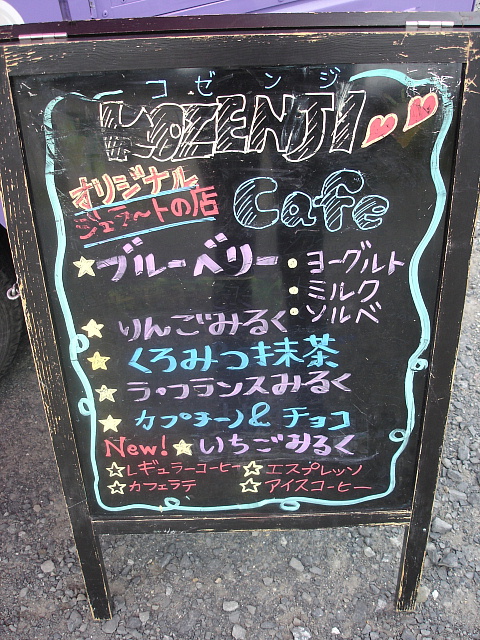 コゼンジ
KOZENJI
オリジナル
ジェラートの店
Cafe
☆ブルーベリー
・ヨーグルト
・ミルク
・ソルベ
☆りんごみるく
☆くろみつ抹茶
☆ラ・フランスみるく
☆カプチーノ&チョコ
New!☆いちごみるく
☆レギュラーコーヒー ☆エスプレッソ
☆カフェラテ ☆アイスコーヒー